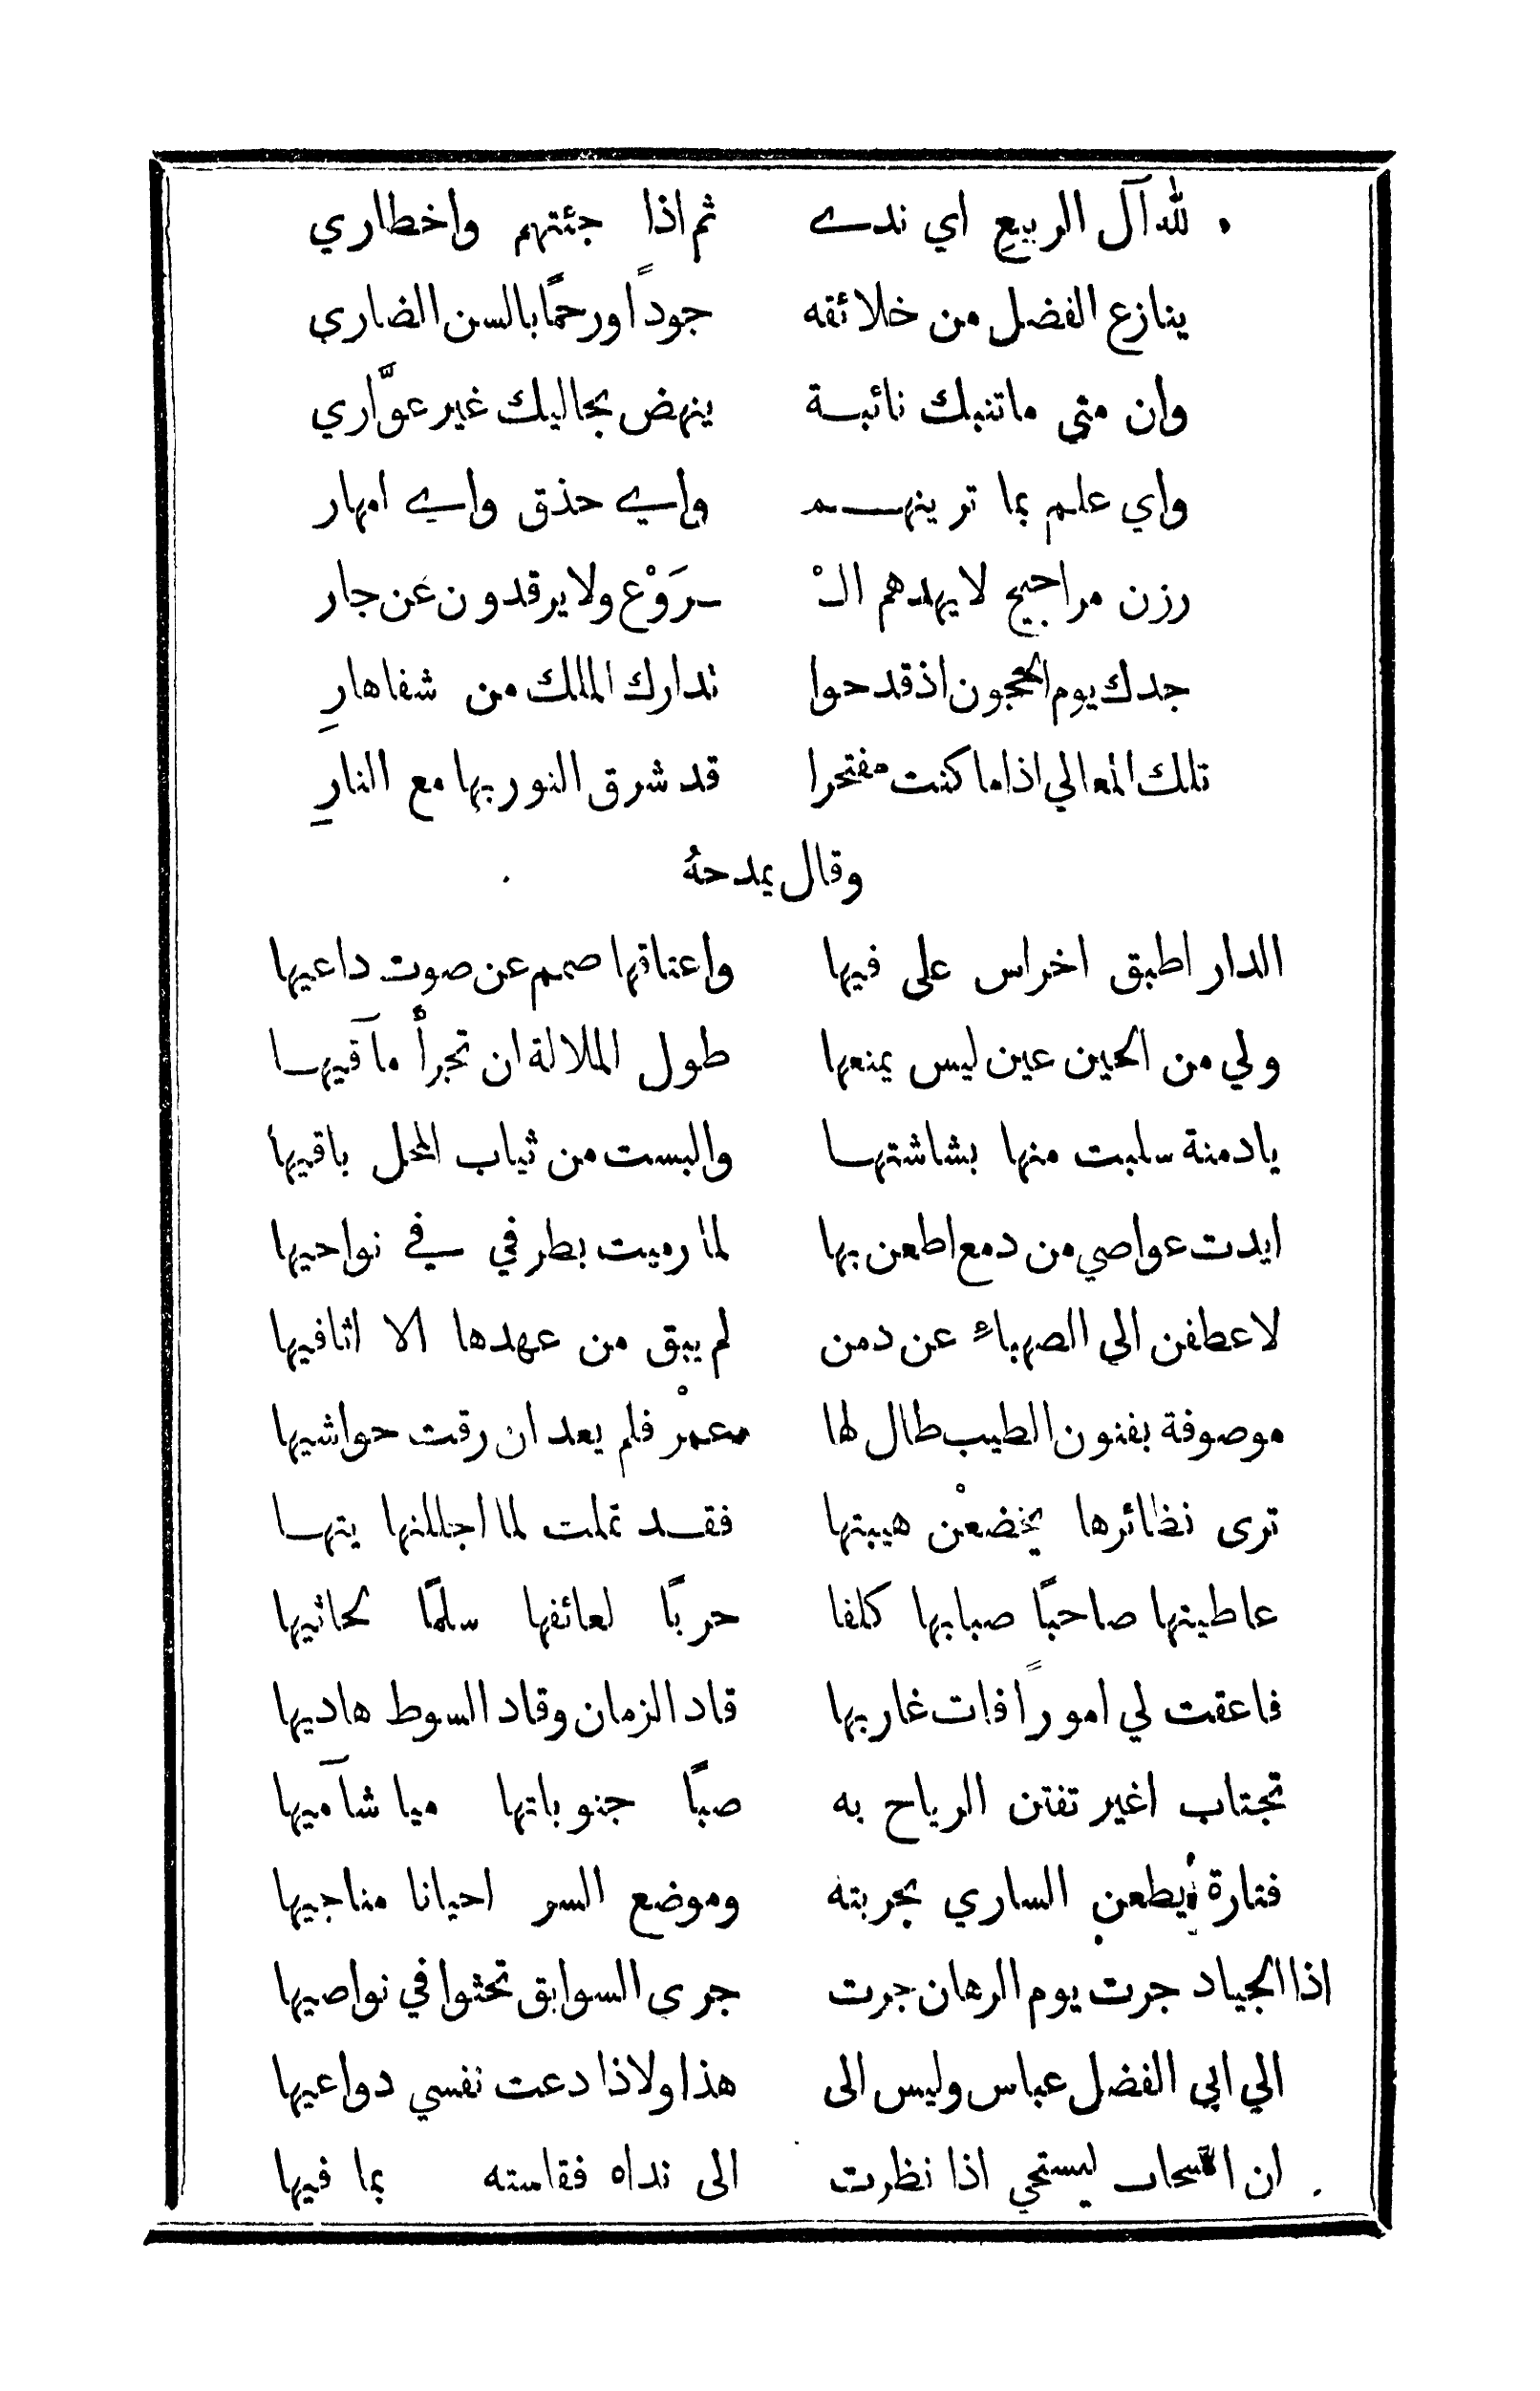 لله آل الربيع اي ندے ثم اذا جئتهم واخطاري
ينازع الفضل من خلائقه جودًا ورحمًا بالسن الضاري
وان متى ما تنبك نائبة ينهض بجاليك غير عوَّاري
واي علم بما ترينهم واي حذق واي امهار
رزن مراجيح لا يهدهم الْ ـرَوْع ولا يرقدون عن جار
جدك يوم الحجون اذ قدحوا تدارك الملك من شفا هارِ
تلك المعالي اذا ما كنت مفتخرا قد شرق النور بها مع النارِ
وقال يمدحهُ
الدار اطبق اخراس على فيها واعتاقها صمم عن صوت داعيها
ولي من الحين عين ليس يمنعها طول الملالة ان تجرأ مآقيها
يا دمنة سلبت منها بشاشتها والبست من ثياب المحل باقيها
ابدت عواصي من دمع اطعن بها لما رميت بطرفي في نواحيها
لاعطفن الى الصهباء عن دمن لم يبق من عهدها الا اثافيها
موصوفة بفنون الطيب طال لها عمْر فلم يعد ان رقت حواشيها
ترى نظائرها يخضعْن هيبتها فقد تملت لما اجللنها يتها
عاطيتها صاحبًا صبابها كلفا حربًا لعائفها سلمًا لحاثيها
فاعقت لي امورًا فات غاربها قاد الزمان وقاد السوط هاديها
تجتاب اغبر تفتن الرياح به صبًا جنوباتها ميا شآميها
فتارة يطعن الساري بحربته وموضع السر احيانا مناجيها
اذا الجياد جرت يوم الرهان جرت جرى السوابق تحثوا في نواصيها
الى ابي الفضل عباس وليس الى هذا ولا ذا دعت نفسي دواعيها
ان السحاب ليستحي اذا نظرت الى نداه فقامته بما فيها